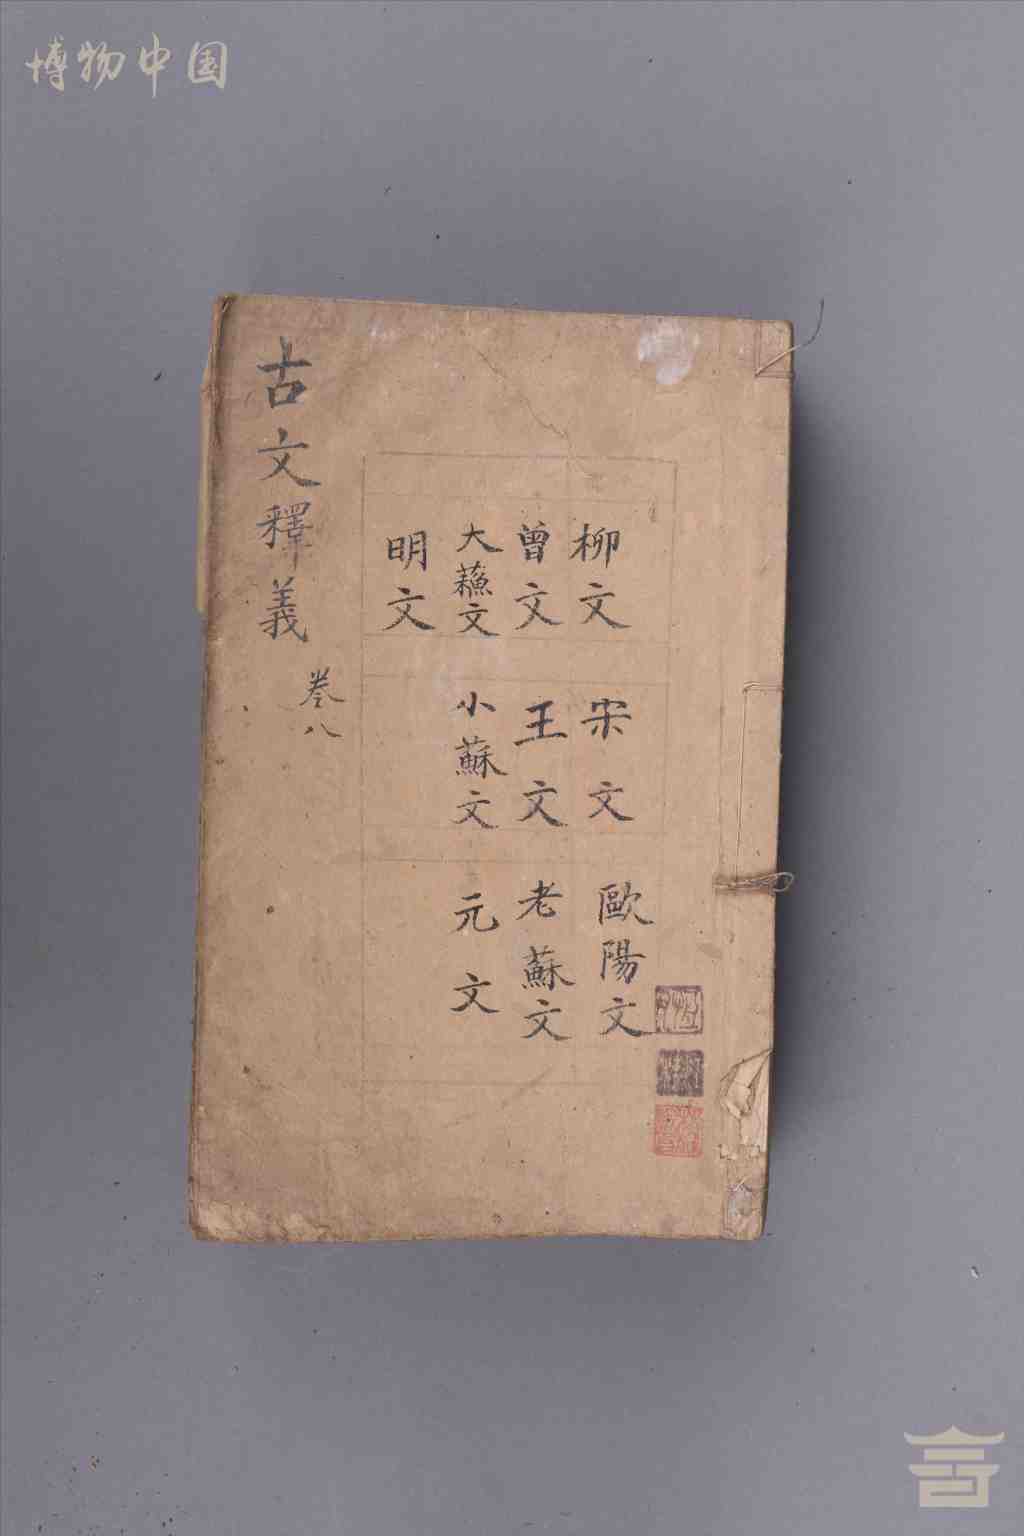 博物中国
柳文 宋文 歐陽文
曾文 王文 老蘇文
大蘓文 小蘇文 元文
明文
古文釋義
卷八